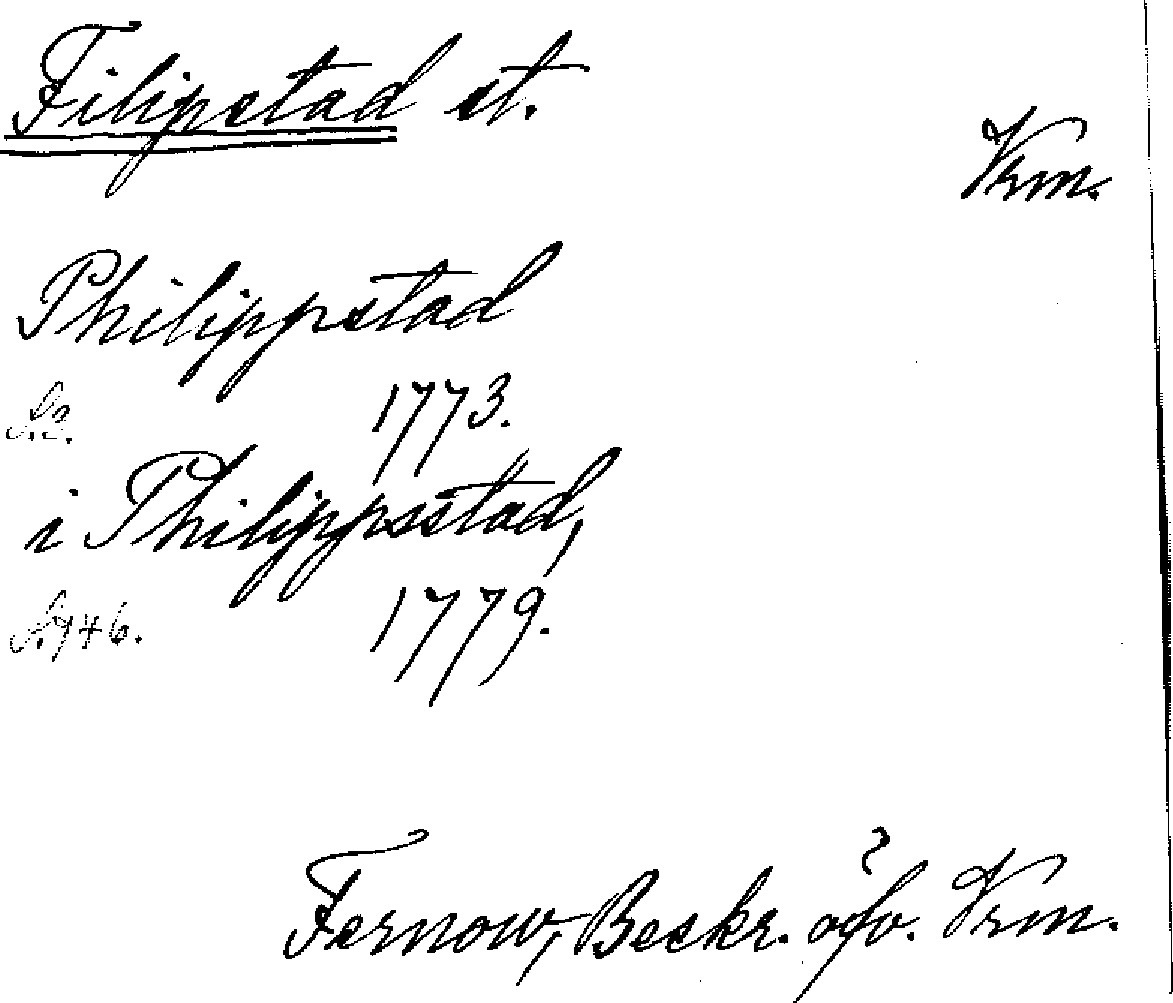 Filipstad st.
Vrm.
Philippstad
S.3. 1773.
i Philippsstad,
S. 746. 1779.
Fernow, Beskr. öfv. Vrm.